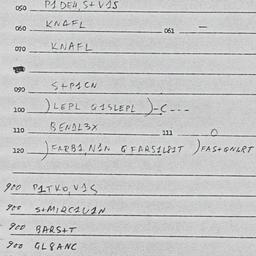 050 P1DEH, S+V1S
060 KNAFL 061 —
070 KNAFL
090 S+P1CN
100 )LEPL G1SLEPL )-C---
110 BENDL3X 111 O
120 )FARB1, N1N G FARS1L81T )FAS+GNLRT
900 P1TKO, V1S
900 S+M1RC1U1N
900 BARS+T
900 GL8ANC